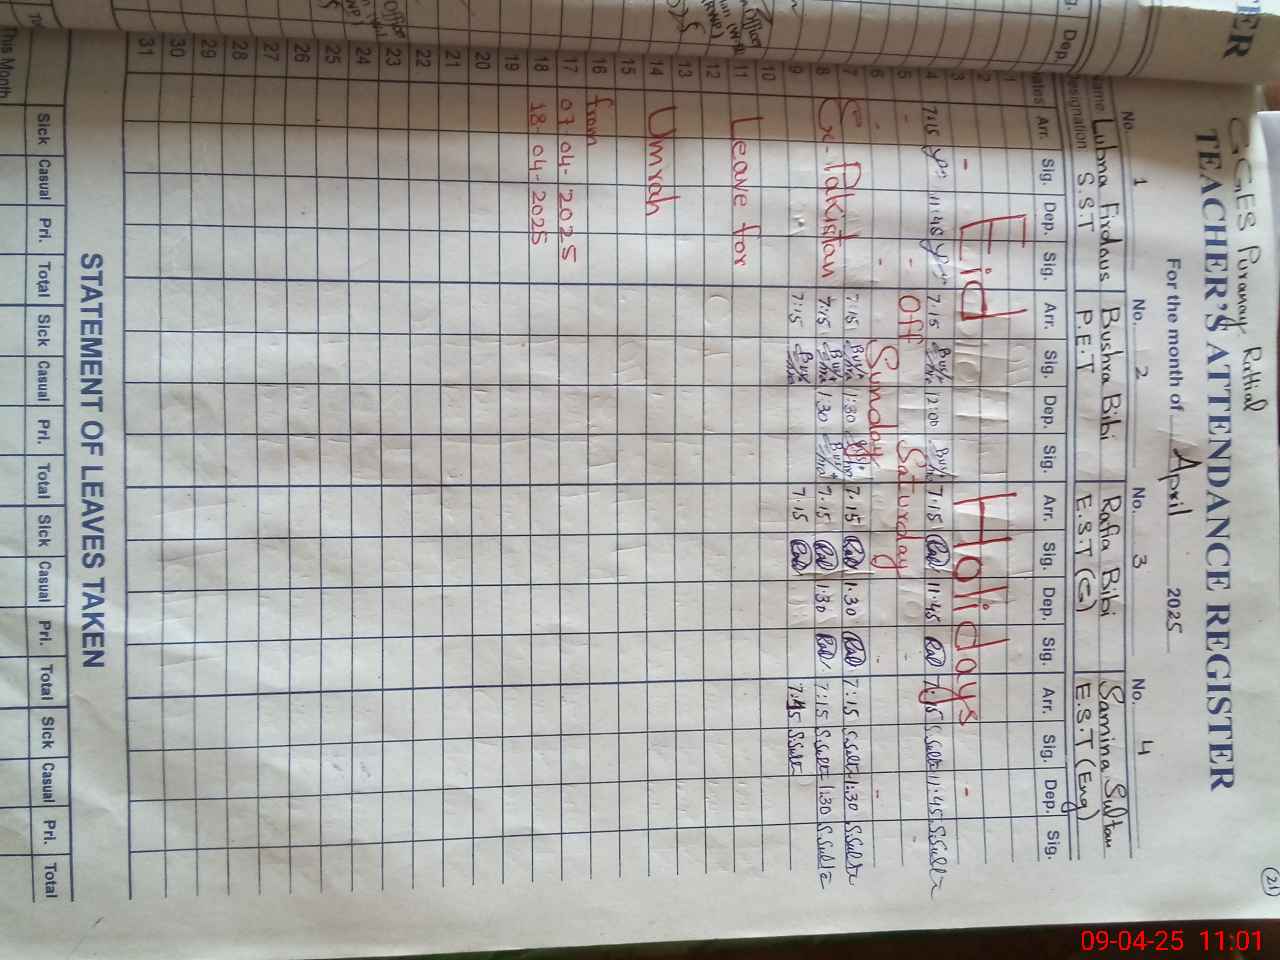 GGES Puranay Rattial
TEACHER'S ATTENDANCE REGISTER
For the month of April 2025
No. 1 No. 2 No. 3 No. 4
Name Lubna Firdous Bushra Bibi Rafia Bibi Samina Sultan
Designation S.S.T P.E.T E.S.T (G) E.S.T (Eng)
Dates Arr. Sig. Dep. Sig. Arr. Sig. Dep. Sig. Arr. Sig. Dep. Sig. Arr. Sig. Dep. Sig.
1
2 Eid Holidays
3
4 7:15 11:45 7:15 12:00 7:15 11:45 7:15 S.Sult 11:45 S.Sult
5 - - Off Saturday
6 - - Sunday -
7 7:15 1:30 7:15 1:30 7:15 S.Sult 1:30 S.Sult
8 Ex-Pakistan 7:15 1:30 7:15 1:30 7:15 S.Sult 1:30 S.Sult
9 7:15 7:15 7:15 S.Sult
10
11 Leave for
12
13
14 Umrah
15
16 from
17 07-04-2025
18 18-04-2025
19
20
21
22
23
24
25
26
27
28
29
30
31
STATEMENT OF LEAVES TAKEN
Sick Casual Pri. Total Sick Casual Pri. Total Sick Casual Pri. Total Sick Casual Pri. Total
This Month
(21)
09-04-25 11:01